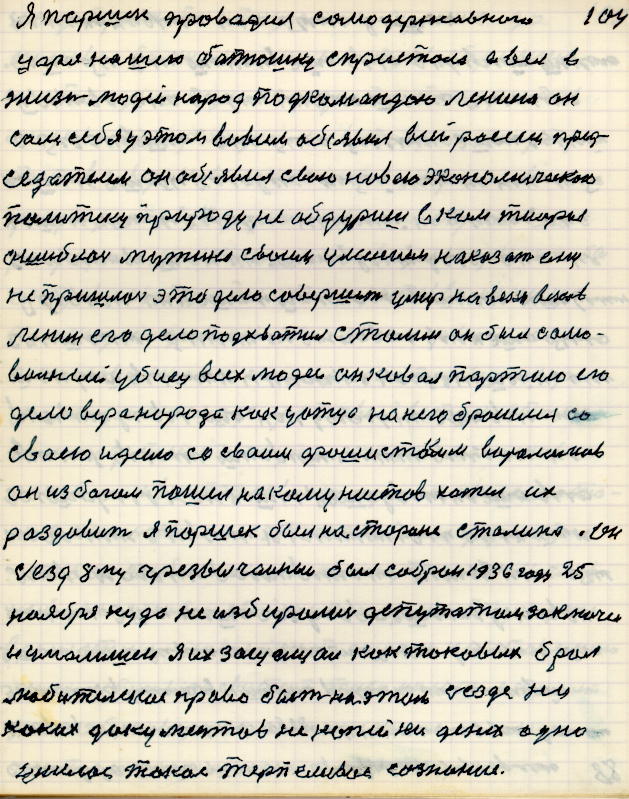 Я паршек провадил самодержавного 104
царя нашию батюшку спристола а вел в
жизн людей народ подкомандаю ленина он
сам себя у этом вовим обявил всей россеи пред-
седателем он обявил сваю новаю экономическаю
политику природу не абдуриш в ком тиори
ошиблас мужика своем умением наказат ему
не пришлос это дело совершит умир на веки веков
ленин его дело подхватил Сталин он был само-
вольнай убиец всех людей он ковал партию его
дело вера народа как на него бросился со
сваею идею со сваим фрошистким варламов
он избогом пошел на комунистов хател их
раздовит я паршек был на старане сталина.
сезд 8му чрезвычайны был собран 1936 году 25
ноября куда не избирали депутатом заключи
и умалишен я их заслушал как таковых брал
любителское право быт на этом сезде ни
каких документов не копейки дених адно
училас такое терпеливае сознание.